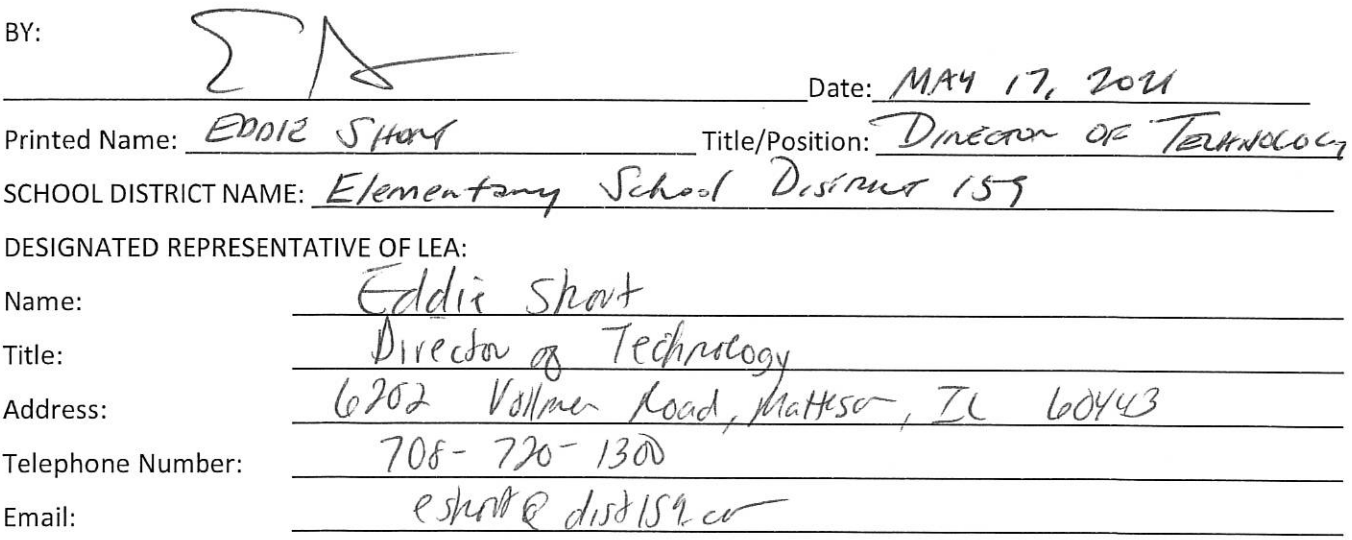 BY:
Date: MAY 17, 2021
Printed Name: EDDIE SHORT Title/Position: DIRECTOR OF TECHNOLOGY
SCHOOL DISTRICT NAME: Elementary School DISTRICT 159
DESIGNATED REPRESENTATIVE OF LEA:
Name: Eddie Short
Title: Director of Technology
Address: 6202 Vollmer Road, Matteson, IL 60443
Telephone Number: 708-720-1300
Email: eshort@dist159.com